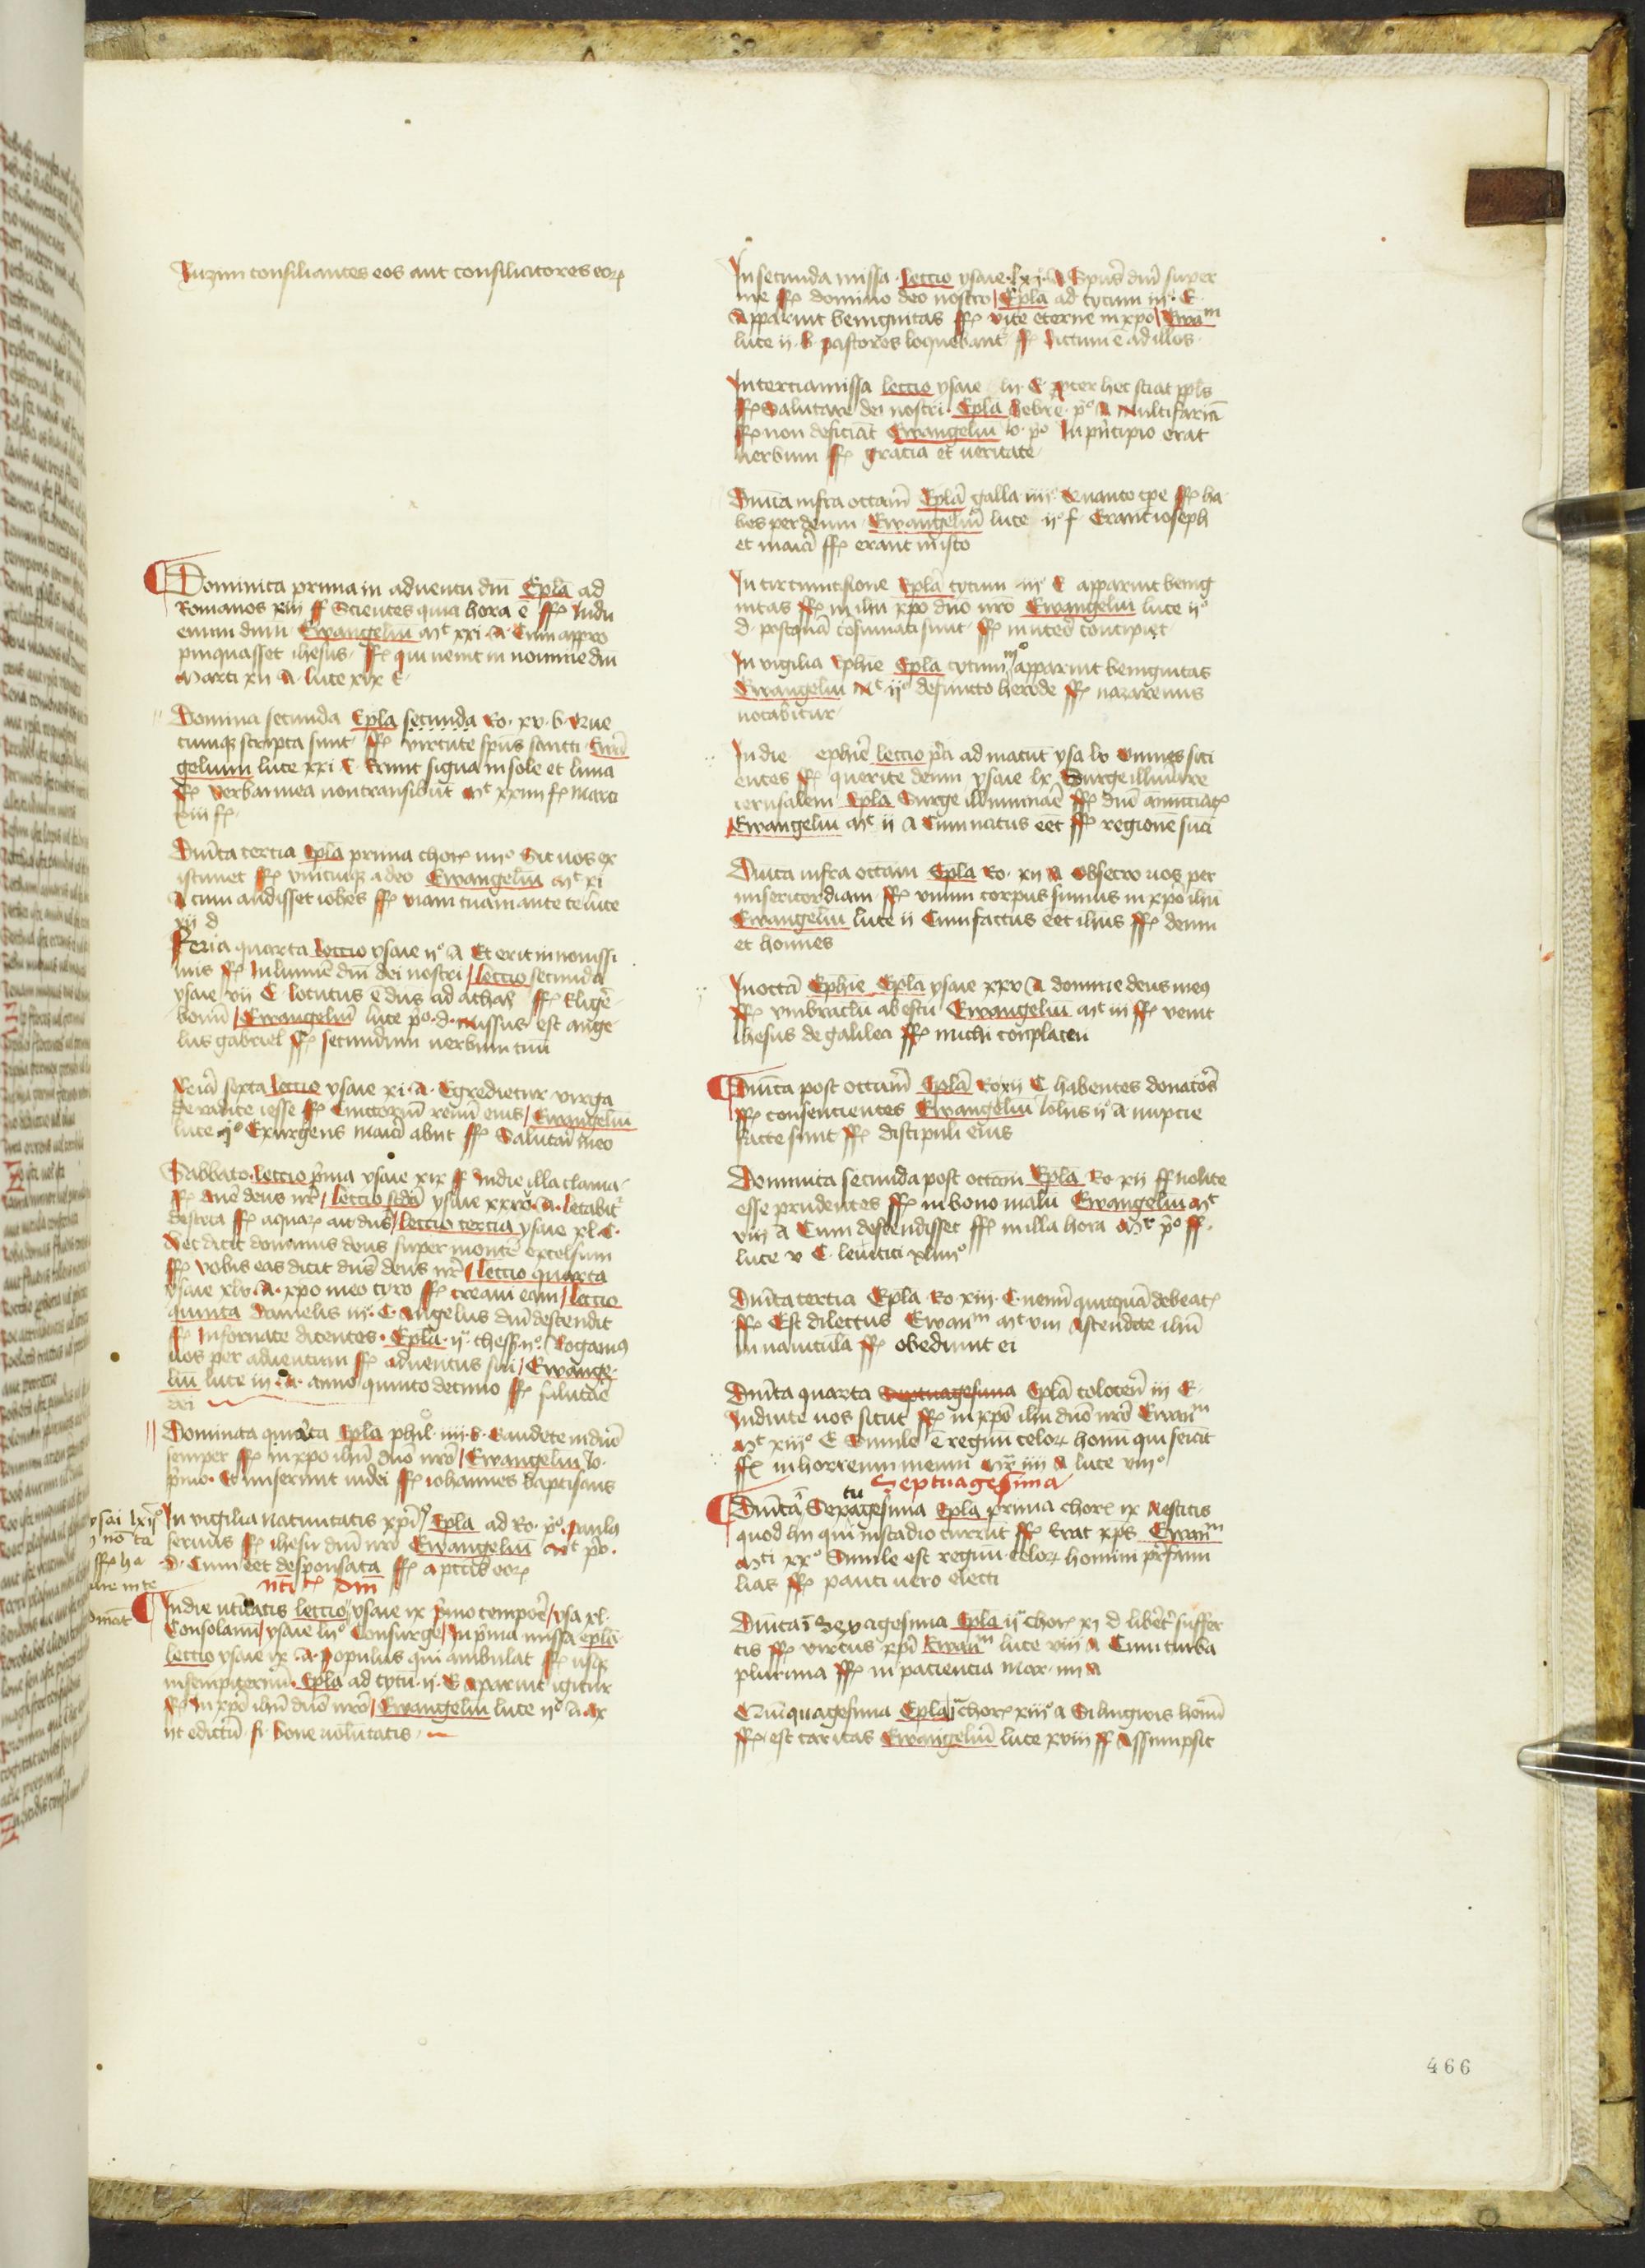 Luzim consiliantes eos aut consiliatores eoꝝ
Dominica prima in aduentu dn̄i Ep̄la ad
Romanos xiii ff Scientes quia hora ē ff Indu
emini dnm̄ Ewangeliū Mt xxi A Cum appro
pinquasset ihesus ff qui uenit in nomine dn̄i
Marci xii A luce xix c
Domina secunda Epla secunda Ro. xv. b. Que
cumqꝫ scripta sunt ff virtute spūs sancti Ewā
gelium luce xxi C Erunt signa in sole et luna
ff verba mea non transibūt Mt xxiiii f Marci
xiii f
Dn̄ica tercia Epla prima choꝝ iiiio Sic nos ex
istimet ff vnicuiqꝫ a deo Ewangeliū Mt xi
A cum audisset iohēs ff viam tuam ante te luce
xii d
Feria quarta lectio ysaie iio A Et erit in nouissi
mis ff In lumīe dn̄i dei nostri / lectio secunda
ysaie vii C locutus ē dn̄s ad achas ff Eligē
bonū / Ewangeliū luce po. d. Missus est ange
lus gabriel ff secundum uerbum tuū
Feria sexta lectio ysaie xi. A. Egredietur virga
de radice iesse ff Cinctoriū renū eius / Ewangeliū
luce io Exurgens maria abiit ff Salutari meo
Sabbato lectio p̄ma ysaie xix ff In die illa clama
ff dn̄e deus nr̄ / lectio scda ysaie xxxv. A. letabit
deserta ff aquaꝝ ait dn̄s / lectio tercia ysaie xl. C.
Hec dicit dominus deus super montē excelsum
ff vobis eas dicit dn̄s deus nr̄ / lectio quarta
ysaie xlv. A. xpo meo cyro ff creaui eum / lectio
quinta danielis iii. C. Angelus dn̄i descendit
ff In fornace dicentes. Epla. ii. thess. iio. Rogamꝰ
uos per aduentum ff aduentus sui / Ewange
liū luce iii. A. anno quinto decimo ff salutāe
dei
Dominica quarta Epla phil. iiii. b. Gaudete in dn̄o
semper ff in xpo ihū dn̄o nrō / Ewangeliū Jo.
p̄mo. Et miserunt iudei ff iohannes baptisans
In vigilia natiuitatis xpī Epla ad Ro. po. Paulꝰ
seruus ff ihesu dn̄i nrō Ewangeliū Mt po.
d. Cum eet desponsata ff a pctis eoꝝ
In die natiuitatis lectio ysaie ix p̄mo tempore / ysa xl.
Consolamī / ysaie lii Consurge / In p̄ma missa epla
lectio ysaie ix A. Populus qui ambulat ff usqꝫ
in sempiternū. Epla ad tytū. ii. C aparuit igitur
ff In xpo ihū dn̄o nrō / Ewangeliū luce iio A Ex
iit edictū ff bone uolūtatis
In secunda missa. lectio ysaie. lxi. A Spūs dn̄i super
me ff domino deo nostro / Epla ad tytum iii. C.
Apparuit benignitas ff vite eterne in xpo / Ewam
luce ii. b. pastores loquebant ff dictum ē ad illos.
In tercia missa lectio ysaie lii C propter hec sciat ppls
ff Salutare dei nostri. Epla hebre. po A Multifariā
ff non deficiāt Ewangeliū io. po In p̄ncipio erat
uerbum ff gracia et ueritate
Dn̄ica infra octauā Epla galla iiii. Quanto tpe ff ha
bes per deum Ewangeliū luce iio f Erant ioseph
et maria ff erant in isto
In circumcisione Epla tytum iii C apparuit benig
nitas ff in ihū xpo dn̄o nrō Ewangeliū luce iio
d. postquā cōsumati sunt. ff in utero conciperet
In vigilia Ephie Epla tytum iiio apparuit benignitas
Ewangeliū Mt iio defuncto herode ff nazarenus
uocabitur
In die ephie lectio pa ad matut ysa lv Omnes siti
entes ff querite deum ysaie lx Surge illuminare
ierusalem Epla Surge illuminare ff dnō annunciātes
Ewangeliū Mt ii A Cum natus eet ff regionē suā
Dn̄ica infra octauam Epla Ro. xii A Obsecro uos per
misericordiam ff vnum corpus sumus in xpo ihū
Ewangeliū luce ii Cum factus eet ihūs ff deum
et homines
In octa Ephie Epla ysaie xxv A domine deus meꝰ
ff vmbraclm ab estu Ewangeliū Mt iii ff venit
ihesus de galilea ff michi conplacui
Dn̄ica post octauā Epla Ro xii C habentes donatōes
ff consencientes Ewangeliū iohis iio A nupcie
facte sunt ff discipuli eius
Dominica secunda post octauam Epla Ro. xii ff nolite
esse prudentes ff in bono malū Ewangeliū Mt
viii A Cum descendisset ff in illa hora Mr po ff.
luce v C. leuitici xiiiio
Dn̄ica tercia Epla Ro xiii. C. nemī quicquā debeatꝭ
ff Est dilectus Ewanm Mt viii Ascendēte ihū
in nauicula ff obediunt ei
Dn̄ica quarta Septuagesima Epla colocen̄ iii C
Induite uos sicut ff in xpo ihū dn̄o nrō Ewanm
Mt xiiio C Simile ē regnū celoꝝ homī qui seīat
ff in horreum meum Mr iiii A luce viiio
Septuagesima
Dn̄ica ī Septuagesima Epla prima choꝝ ix Nescitis
quod hii qui in stadio currūt ff Erat xp̄s Ewanm
Mti xxo Simile est regnū celoꝝ homini prfami
lias ff pauci uero electi
Dn̄ica ī Sexagesima Epla ii choꝝ xi d libētr suffer
tis ff virtus xpī Ewanm luce viii A Cum turba
plurima ff in paciencia Mar. iiii A
Quīquagesima Epla i choꝝ xiiio A Si lingwis homī
ff est caritas Ewangeliū luce xviii ff Assumpsit
466